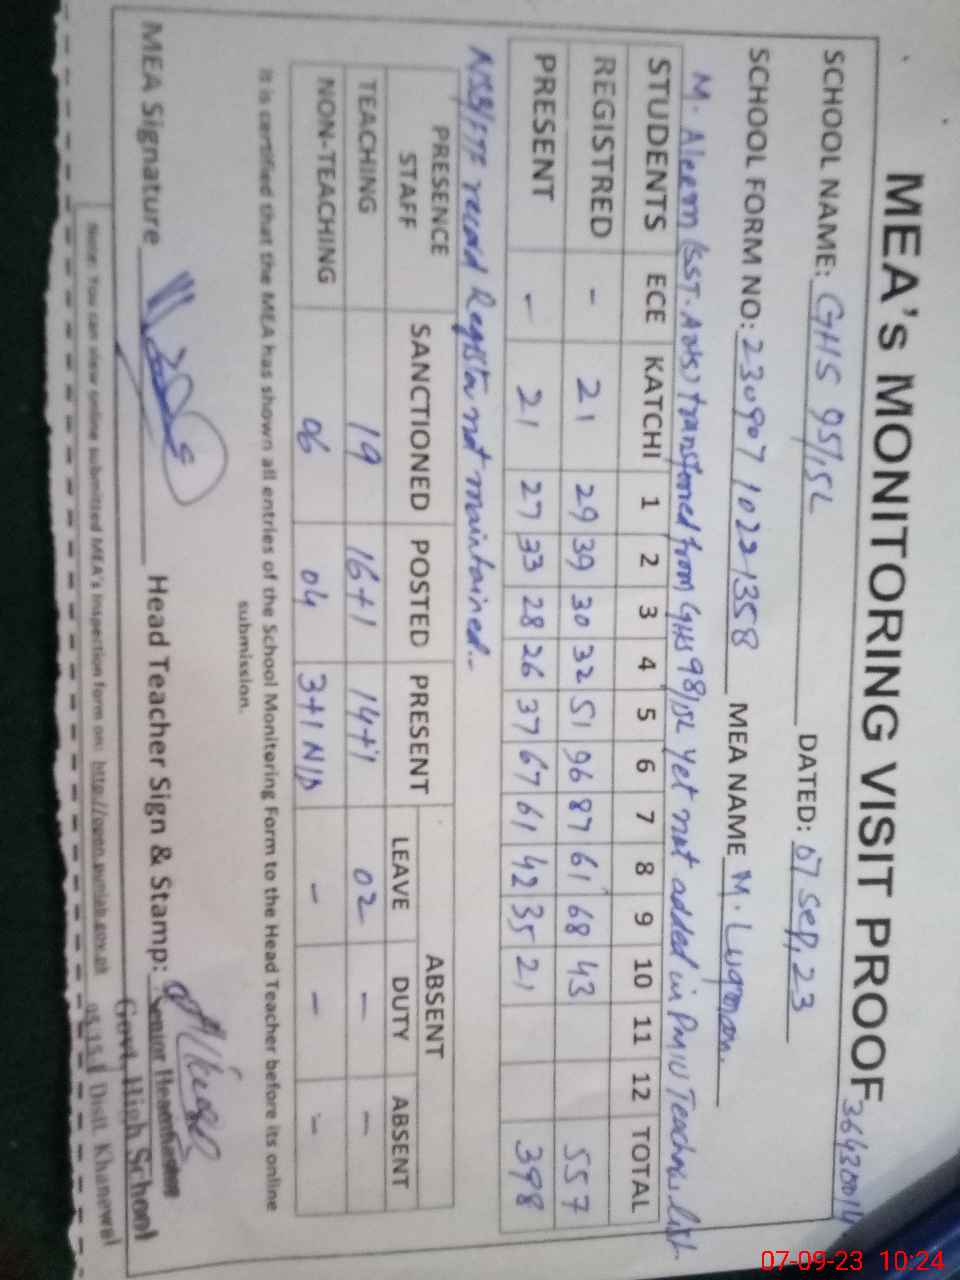 MEA's MONITORING VISIT PROOF 36430014
SCHOOL NAME: GHS 95/15L DATED: 07 Sep, 23
SCHOOL FORM NO: 230907 1022 1358 MEA NAME M. Luqman.
M. Aleem (SST. Arts) transferred from GHS 98/15L Yet not added in PMIU Teachers list.
STUDENTS ECE KATCHI 1 2 3 4 5 6 7 8 9 10 11 12 TOTAL
REGISTRED - 21 29 39 30 32 51 96 87 61 68 43 557
PRESENT - 21 27 33 28 26 37 67 61 42 35 21 398
NSB/FTF record Register not maintained..
PRESENCE STAFF SANCTIONED POSTED PRESENT ABSENT
LEAVE DUTY ABSENT
TEACHING 19 16+1 14+1 02 - -
NON-TEACHING 06 04 3+1 N/D - - -
It is certified that the MEA has shown all entries of the School Monitoring Form to the Head Teacher before its online
submission.
MEA Signature Head Teacher Sign & Stamp:
Senior Headmaster
Govt. High School
95/15.L Distt. Khanewal
Note: You can view online submitted MEA's inspection form on: http://open.punjab.gov.pk
07-09-23 10:24